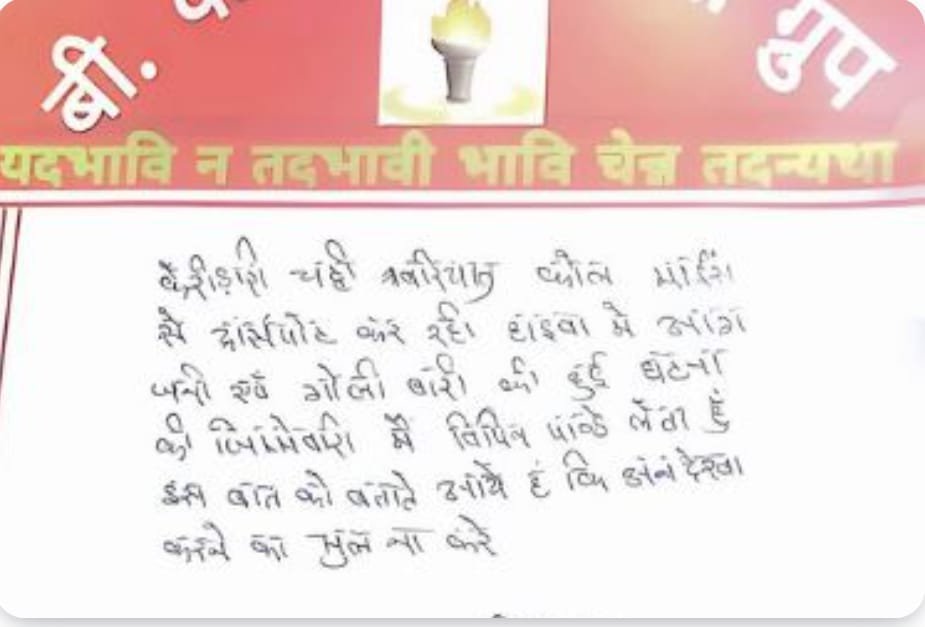 बी. ग्रुप
यदभावि न तदभावी भावि चेन्न तदन्यथा
केरीडारी चट्टी बारियातु कोल माईंस
से ट्रांर्सपोट कर रही हाइवा मे आग
जनी एवं गोली बारी की हुई घटना
की जिम्मेवारी मै विपिन पांडे लेता हुँ
इस बात को बताते आये हं कि अनंदेखा
करने का भुल ना करे